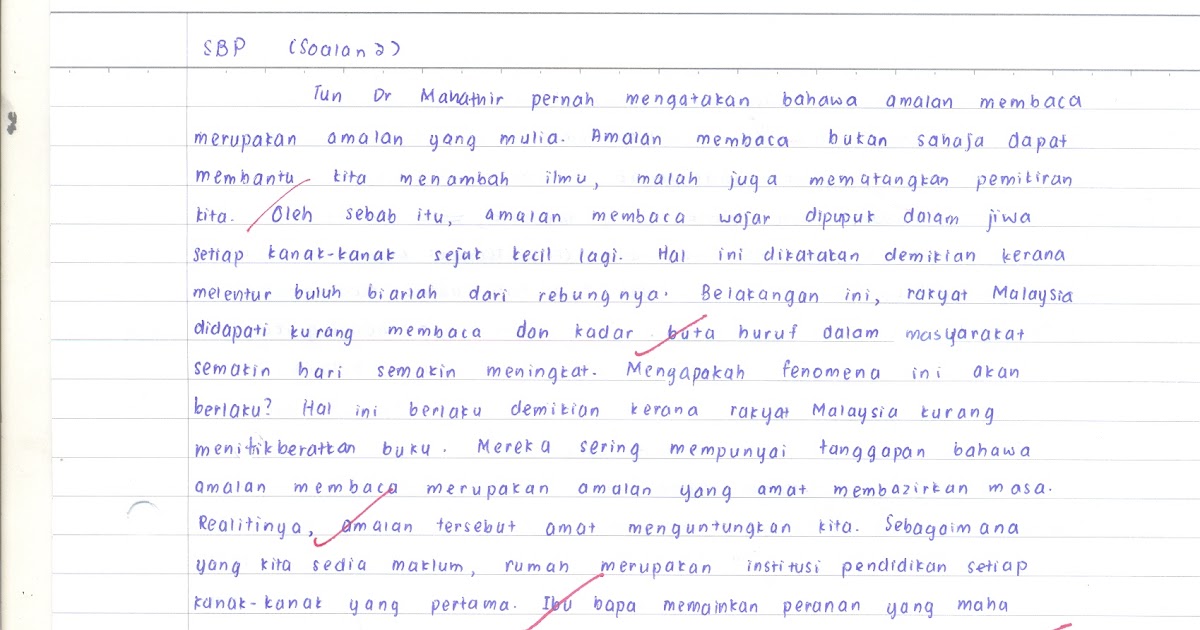 SBP (Soalan 2)
Tun Dr Mahathir pernah mengatakan bahawa amalan membaca
merupakan amalan yang mulia. Amalan membaca bukan sahaja dapat
membantu kita menambah ilmu, malah juga mematangkan pemikiran
kita. Oleh sebab itu, amalan membaca wajar dipupuk dalam jiwa
setiap kanak-kanak sejak kecil lagi. Hal ini dikatakan demikian kerana
melentur buluh biarlah dari rebungnya. Belakangan ini, rakyat Malaysia
didapati kurang membaca dan kadar buta huruf dalam masyarakat
semakin hari semakin meningkat. Mengapakah fenomena ini akan
berlaku? Hal ini berlaku demikian kerana rakyat Malaysia kurang
menitikberatkan buku. Mereka sering mempunyai tanggapan bahawa
amalan membaca merupakan amalan yang amat membazirkan masa.
Realitinya, amalan tersebut amat menguntungkan kita. Sebagaimana
yang kita sedia maklum, rumah merupakan institusi pendidikan setiap
kanak-kanak yang pertama. Ibu bapa memainkan peranan yang maha